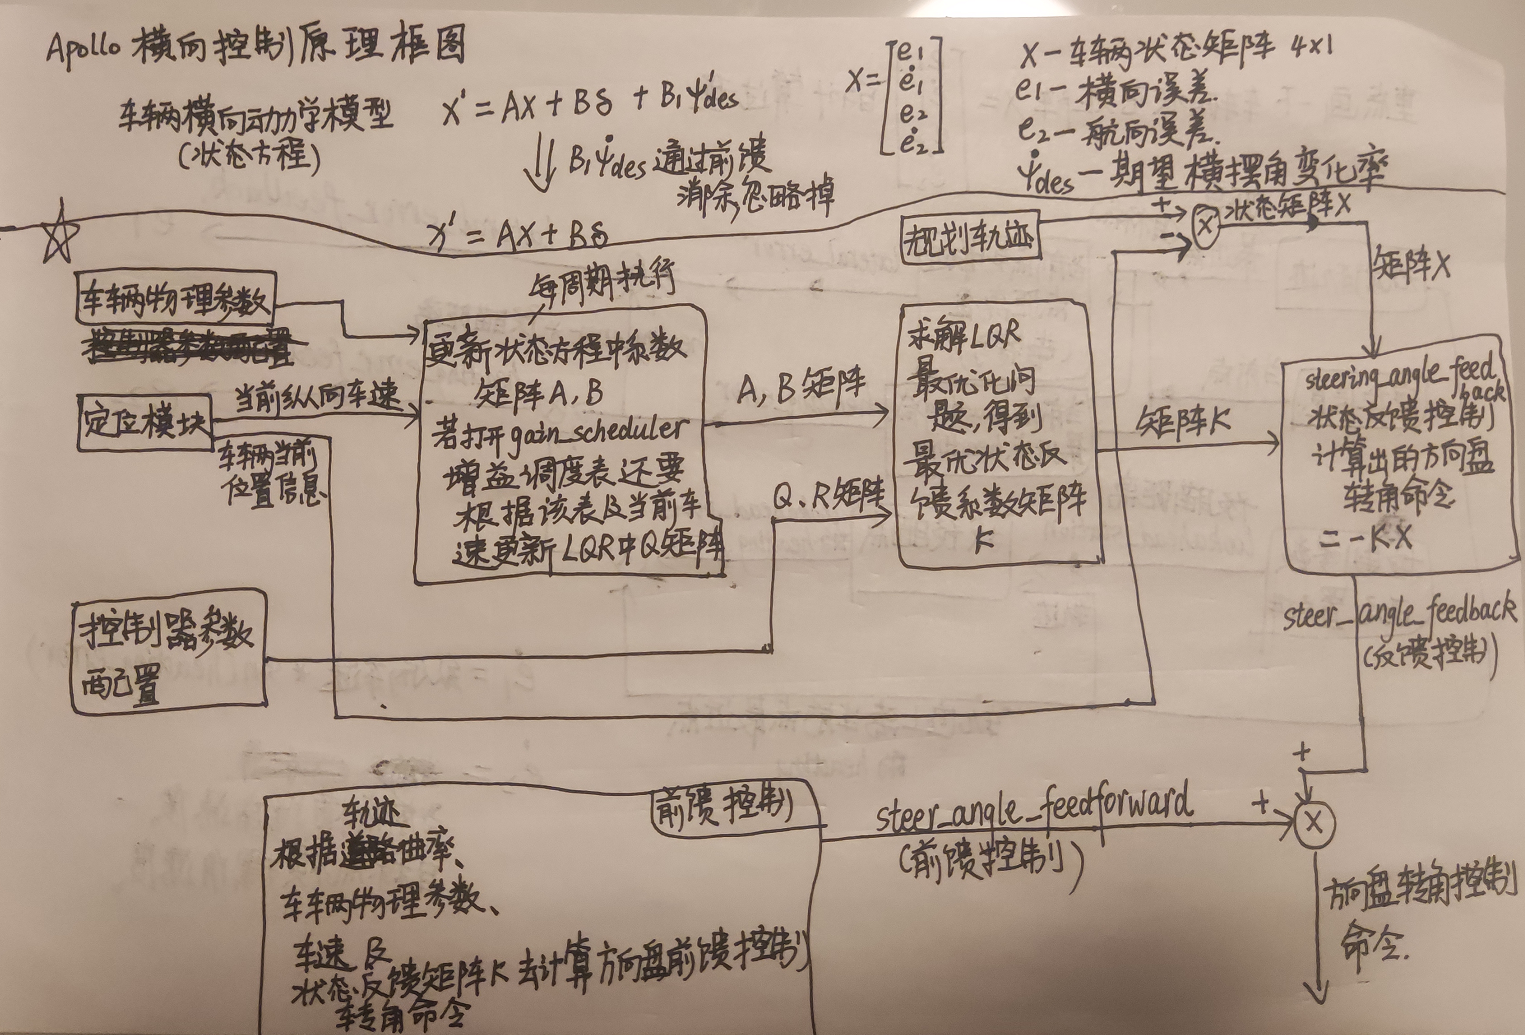 Apollo 横向控制原理框图
车辆横向动力学模型
(状态方程)
x' = Ax + Bδ + B₁ψ'des
⇓ B₁ψ̇des 通过前馈
消除,忽略掉
x' = Ax + Bδ
X = [e₁
ė₁
e₂
ė₂]
X — 车辆状态矩阵 4×1
e₁ — 横向误差.
e₂ — 航向误差.
ψ̇des — 期望横摆角变化率
规划轨迹
+
-
x
状态矩阵X
矩阵X
车辆物理参数
控制器参数配置
定位模块
当前纵向车速
车辆当前
位置信息
每周期执行
更新状态方程中系数
矩阵A,B
若打开gain_scheduler
增益调度表还要
根据该表及当前车
速更新LQR中Q矩阵
A,B矩阵
Q、R矩阵
求解LQR
最优化问
题,得到
最优状态反
馈系数矩阵
K
矩阵K
steering_angle_feed
back
状态反馈控制
计算出的方向盘
转角命令
= -K·X
steer_angle_feedback
(反馈控制)
控制器参数
配置
前馈控制
轨迹
根据道路曲率、
车辆物理参数、
车速 及
状态反馈矩阵K去计算方向盘前馈控制
转角命令
steer_angle_feedforward
(前馈控制)
+
+
x
方向盘转角控制
命令.